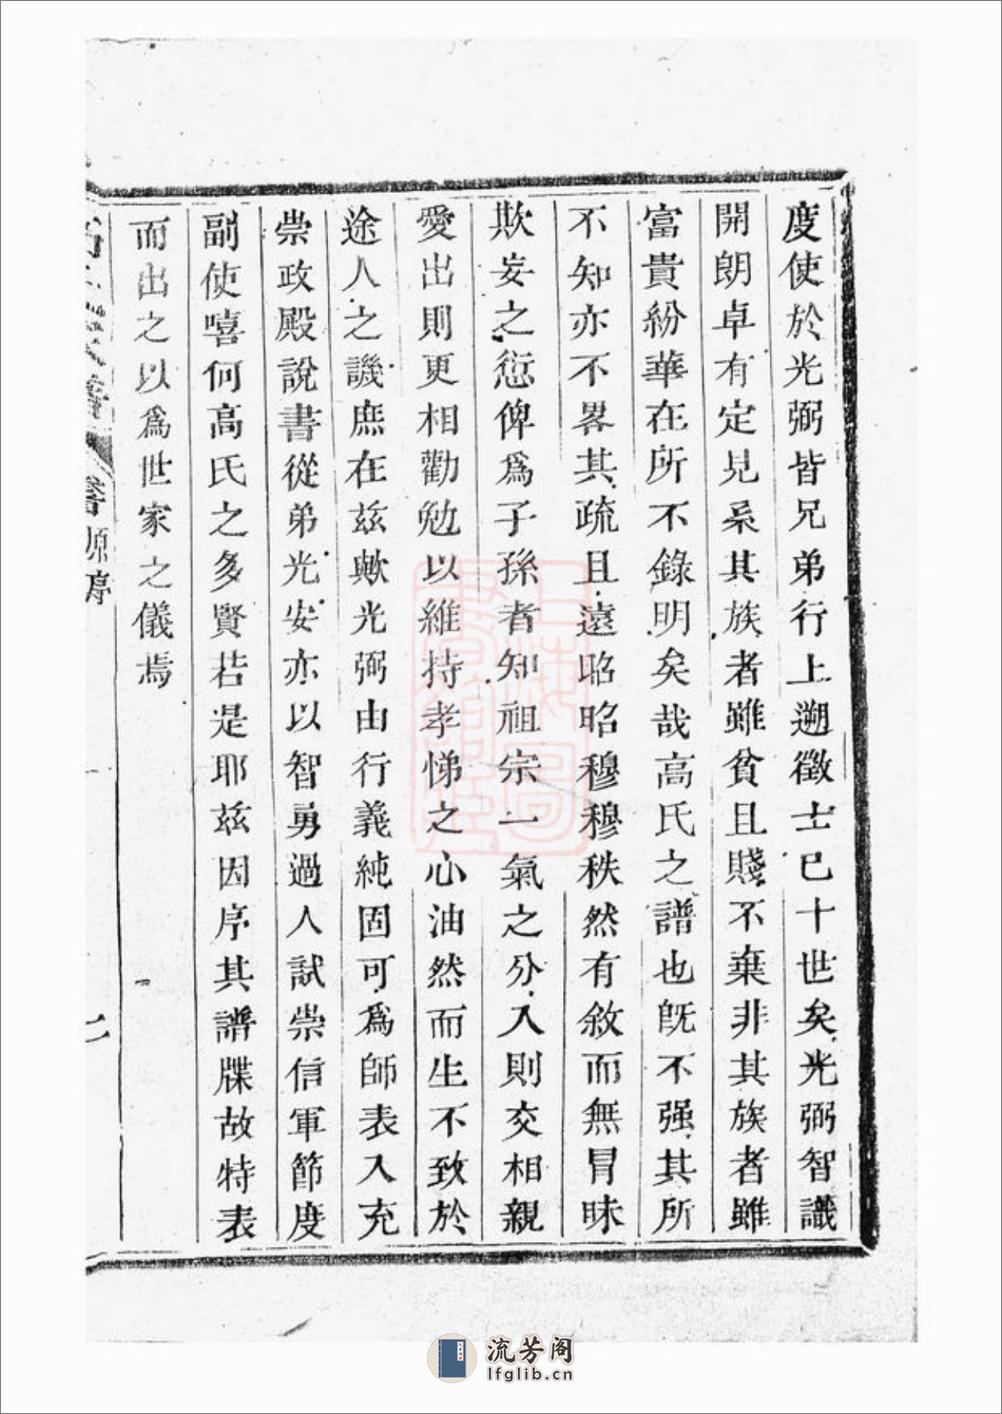 度使於光弼皆兄弟行上遡徵士已十世矣光弼智識
開朗卓有定見系其族者雖貧且賤不棄非其族者雖
富貴紛華在所不錄明矣哉高氏之譜也旣不强其所
不知亦不畧其疏且遠昭昭穆穆秩然有敘而無冒昧
欺妄之愆俾爲子孫者知祖宗一氣之分入則交相親
愛出則更相勸勉以維持孝悌之心油然而生不致於
途人之譏庶在兹歟光弼由行義純固可爲師表入充
崇政殿說書從弟光安亦以智勇過人試崇信軍節度
副使嘻何高氏之多賢若是耶兹因序其譜牒故特表
而出之以爲世家之儀焉
原序
流芳阁
lfglib.cn